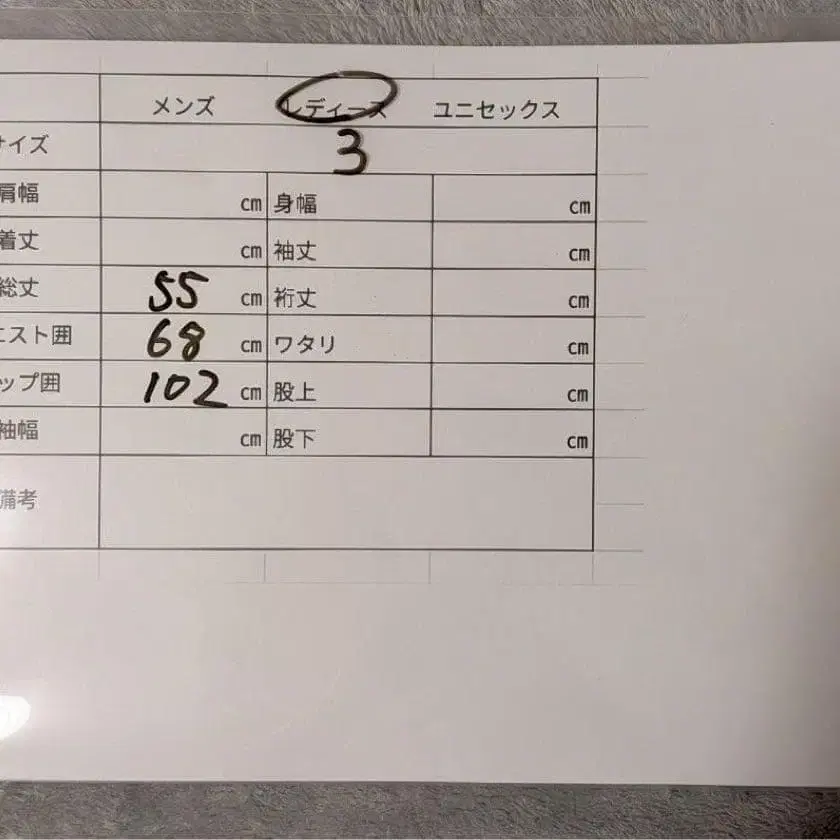 メンズ レディース ユニセックス
サイズ 3
肩幅 cm 身幅 cm
着丈 cm 袖丈 cm
総丈 55 cm 裄丈 cm
エスト囲 68 cm ワタリ cm
ップ囲 102 cm 股上 cm
袖幅 cm 股下 cm
備考